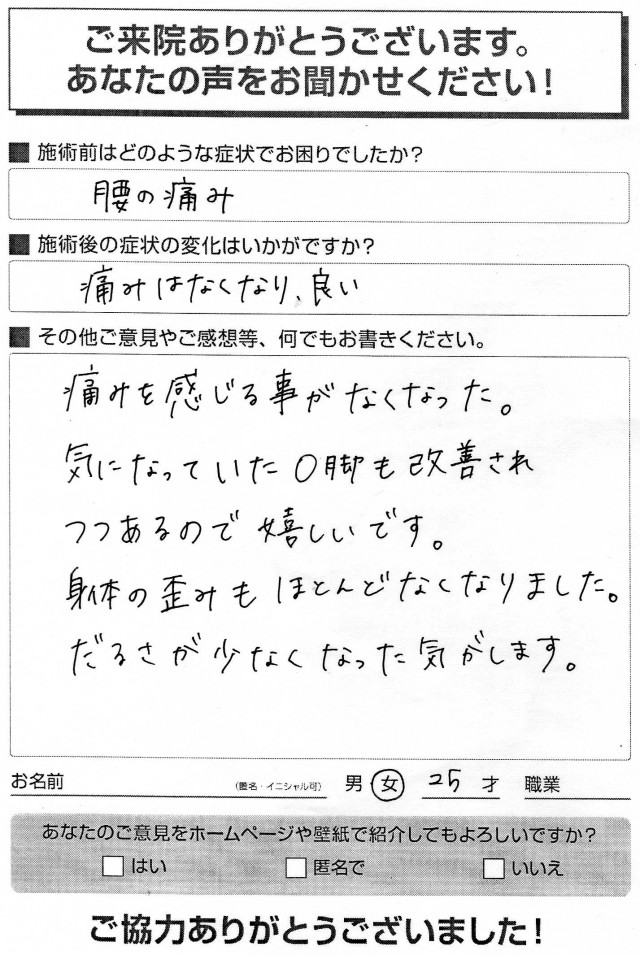 ご来院ありがとうございます。
あなたの声をお聞かせください！
■ 施術前はどのような症状でお困りでしたか？
腰の痛み
■ 施術後の症状の変化はいかがですか？
痛みはなくなり、良い
■ その他ご意見やご感想等、何でもお書きください。
痛みを感じる事がなくなった。
気になっていたO脚も改善され
つつあるので嬉しいです。
身体の歪みもほとんどなくなりました。
だるさが少なくなった気がします。
お名前 （匿名・イニシャル可） 男 女 25 才 職業
あなたのご意見をホームページや壁紙で紹介してもよろしいですか？
□ はい □ 匿名で □ いいえ
ご協力ありがとうございました！